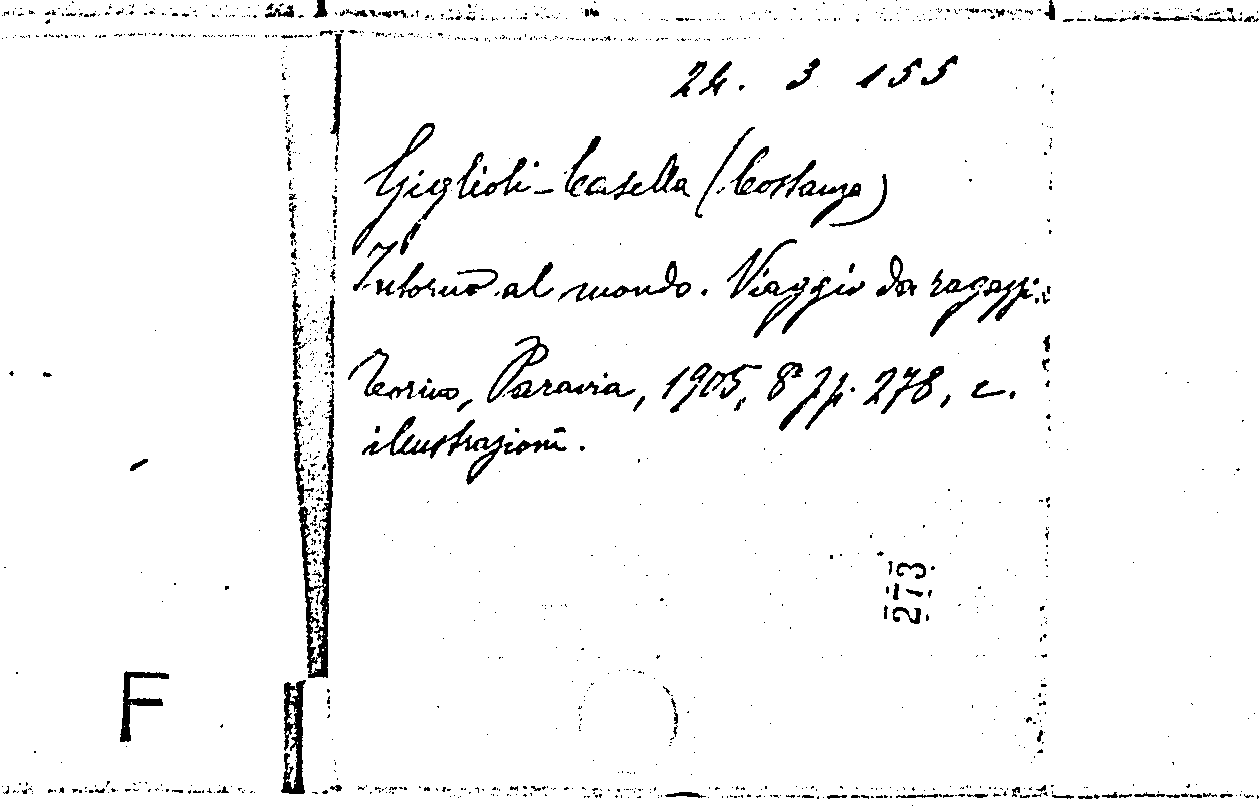 24. 3 155
Giglioli-Casella (Costanza)
Intorno al mondo. Viaggio da ragazzi.
Torino, Paravia, 1905, 8° pp. 278, c.
illustrazioni.
273
F